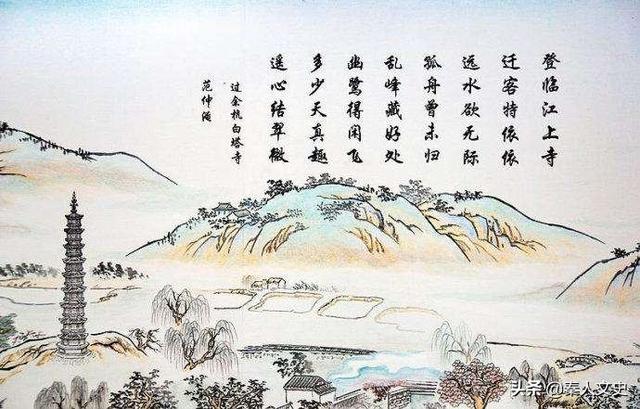 登临江上寺
迁客特依依
远水欲无际
孤舟曾未归
乱峰藏好处
幽鹭得闲飞
多少天真趣
遥心结翠微
过余杭白塔寺
范仲淹
头条@素人文史